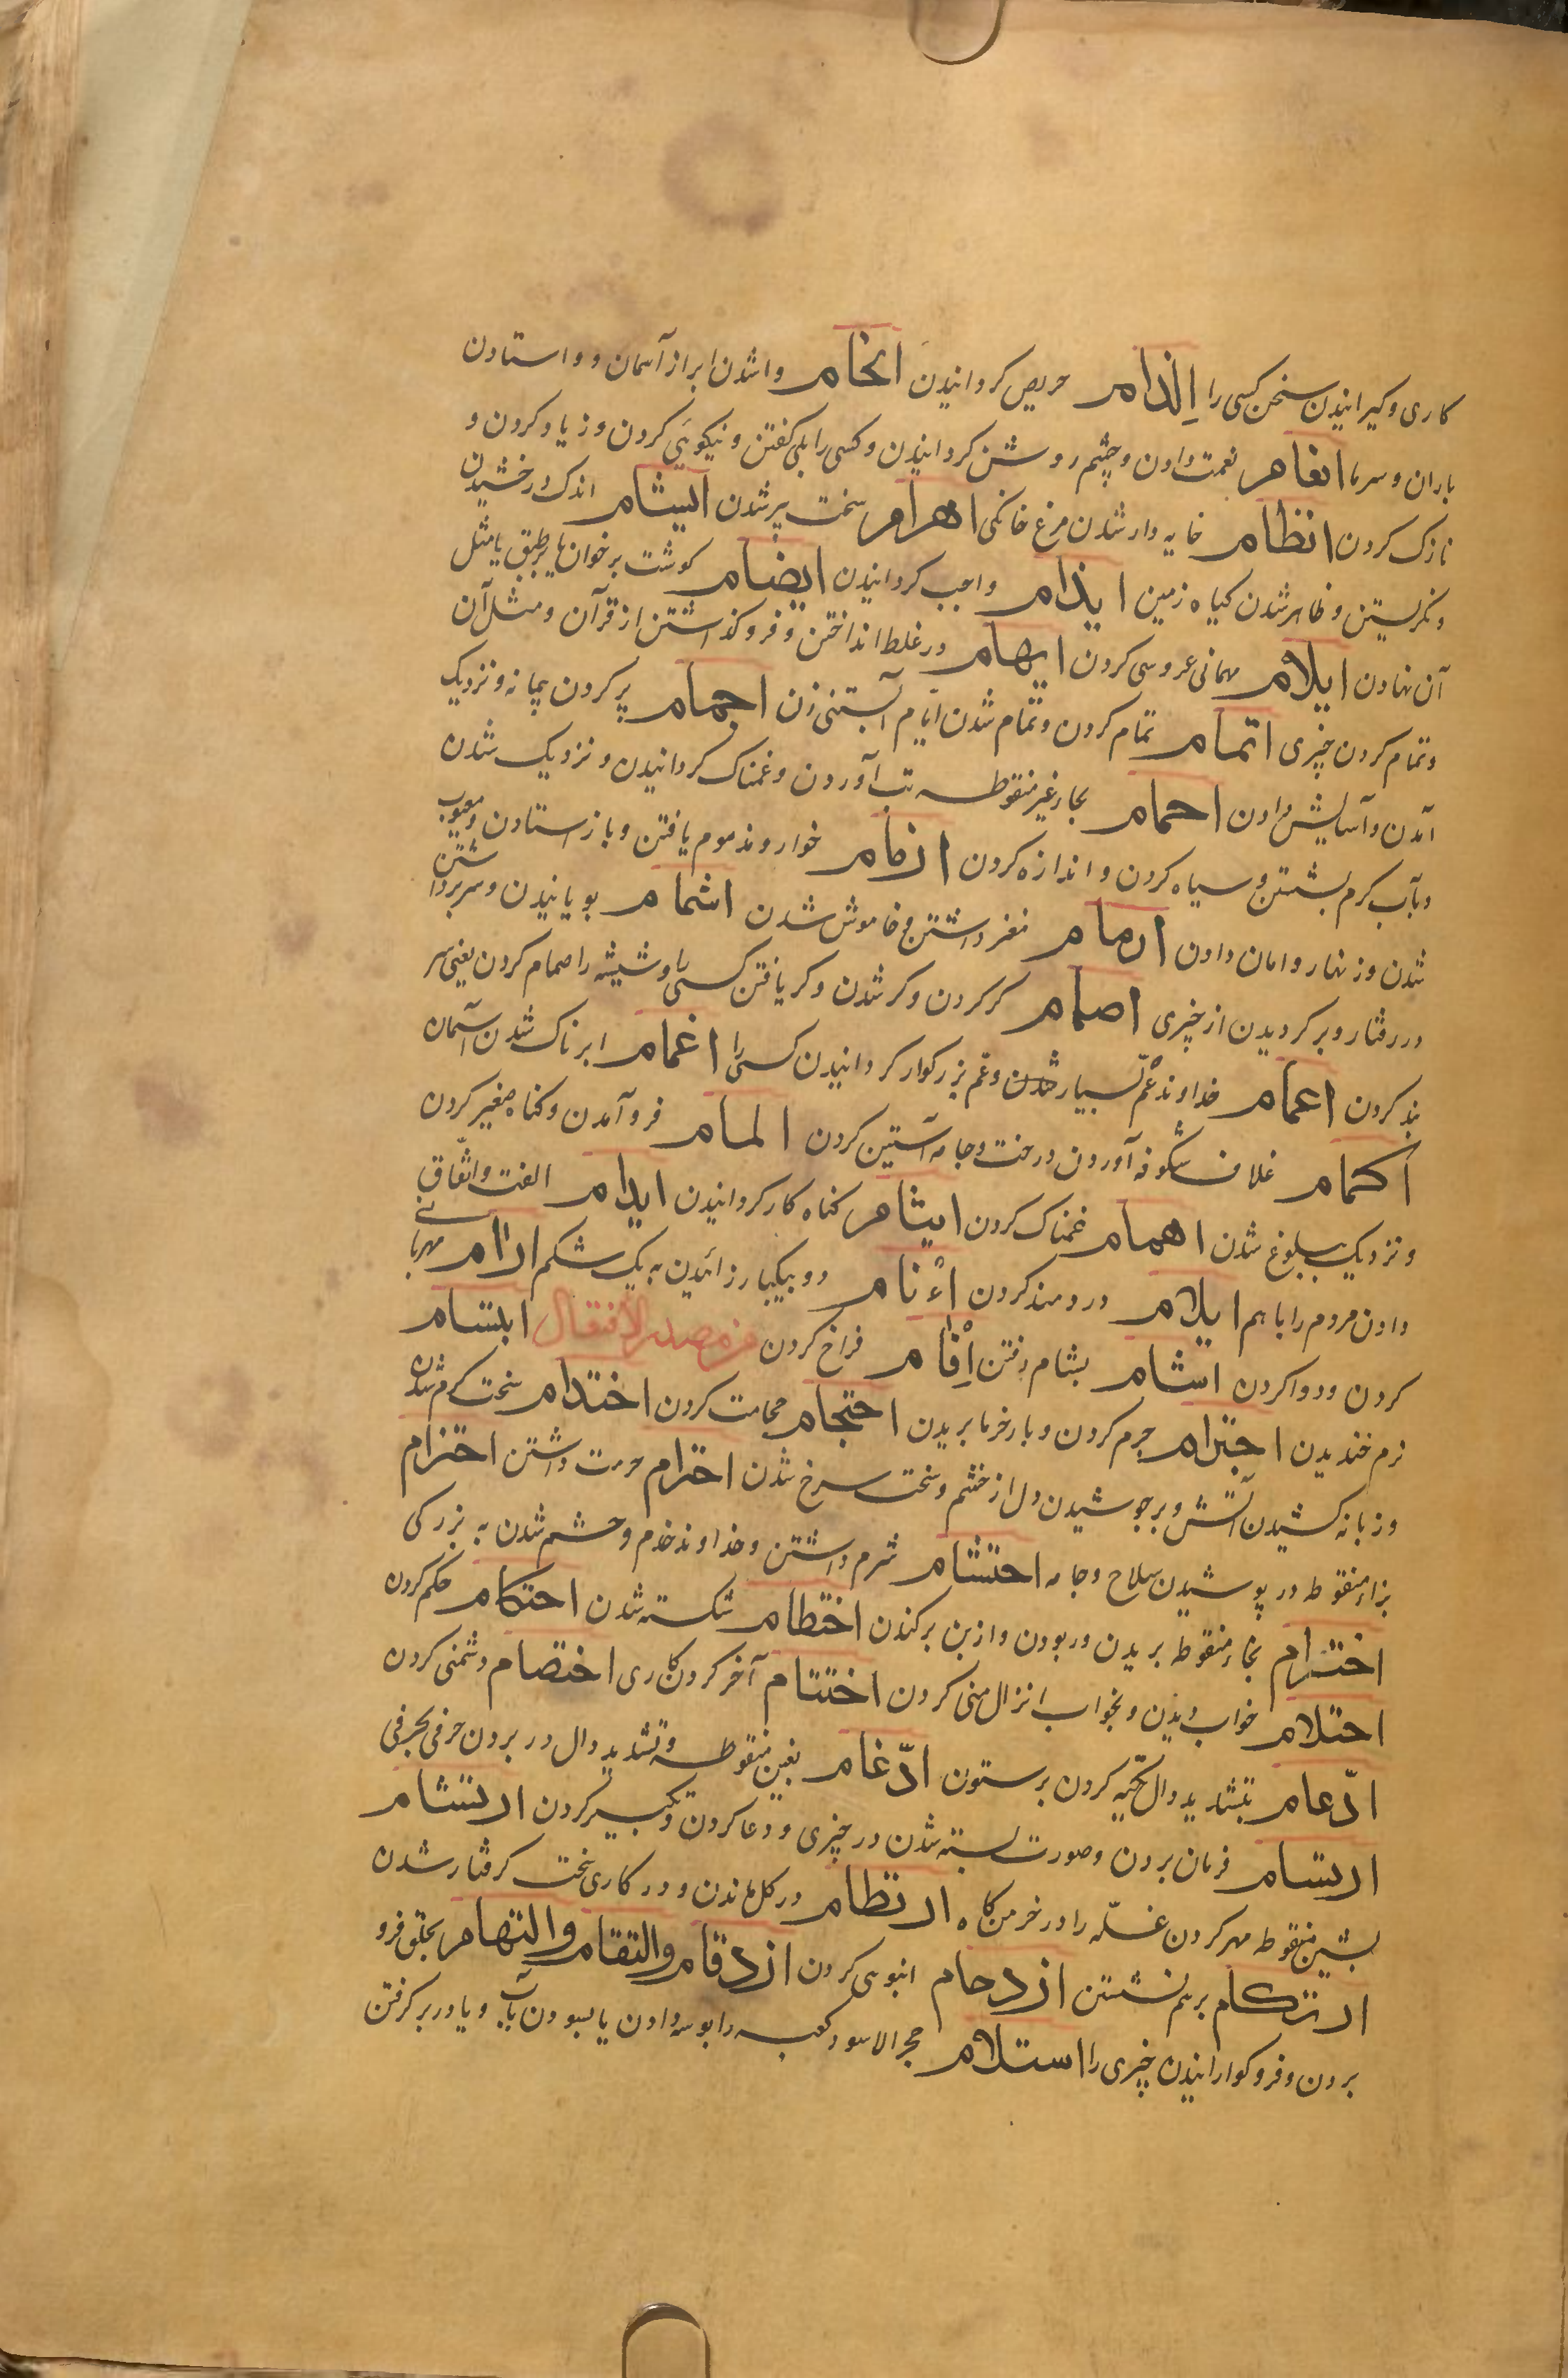 کاری و کیرانیدن سخن کسی را اِلذام حریص کردانیدن انحام واشدن ابر از آسمان و وا ستادن
باران و سرما انعام نعمت دادن و چشم روشن کردانیدن و کسی را بلی کفتن و نیکوئی کردن و زیاد کردن و
نازک کردن انظام خایه دار شدن مرغ خانکی اهرام سخت پیر شدن ایشام اندک درخشیدن
و نکریستن و ظاهر شدن کیاه زمین ایذام واجب کردانیدن ایضام کوشت بر خوان یا بر طبق یا مثل
آن نهادن ایلام مهمانی عروسی کردن ایهام در غلط انداختن و فرو کذاشتن از قرآن و مثل آن
و تمام کردن چیزی اتمام تمام کردن و تمام شدن ایّام آبستنی زن اجمام پر کردن پیمانه و نزدیک
آمدن و آسایش دادن احمام بحاء غیر منقوطه تب آوردن و غمناک کردانیدن و نزدیک شدن
و بآب کرم بشستن و سیاه کردن و اندازه کردن اذمام خوار و مذموم یافتن و باز استادن و معیوب
شدن و زنهار و امان دادن ارمام مغز داشتن و خاموش شدن اشمام بویانیدن و سر برداشتن
در رفتار و برکردیدن از چیزی اصمام کر کردن و کر شدن و کر یافتن کسی را و شیشه را صمام کردن یعنی سر
بند کردن اعمام خداوند عمّ بسیار شدن و عم بزرکوار کردانیدن کسی را اغمام ابرناک شدن آسمان
اکمام غلاف شکوفه آوردن درخت و جامه آستین کردن المام فرو آمدن و کناه صغیر کردن
و نزدیک ببلوغ شدن اهمام غمناک کردن ایثام کناه کار کردانیدن ایدام الفت و اتّفاق
دادن مردم را با هم ایلام دردمند کردن اءْنام دو بیکبار زائیدن به یک شکم ارام مهربانے
کردن و دوا کردن اشام بشام رفتن اِفْام فراخ کردن من مصدر الافتعال ابتسام
نرم خندیدن اجترام جرم کردن و بار خرما بریدن احتجام حجامت کردن اختدام سخت کرم شدن
و زبانه کشیدن آتش و بر جوشیدن دل از خشم و سخت سرخ شدن احترام حرمت داشتن احتزام
بزاء منقوطه در پوشیدن سلاح و جامه احتشام شرم داشتن و خداوند خدم و حشم شدن به بزرکی
اخترام بخاء منقوطه بریدن و ربودن و از بن برکندن اختطام شکسته شدن احتکام حکم کردن
احتلام خواب دیدن و بخواب انزال منی کردن اختتام آخر کردن کاری اختصام دشمنی کردن
ادّعام بتشدید دال تکیه کردن بر ستون ادّغام بغین منقوطه و تشدید دال در بردن حرفی بحرفی
ارتسام فرمان بردن و صورت بسته شدن در چیزی و دعا کردن و تکبیر کردن ارتشام
بشین منقوطه مهر کردن غلّه را در خرمن کاه ارتطام در کل ماندن و در کاری سخت کرفتار شدن
ارتکام بر هم نشستن ازدحام انبوهی کردن ازدقام والتقام والتهام بحلق فرو
بردن و فرو کوارانیدن چیزی را استلام حجر الاسود کعبه را بوسه دادن یا بسودن بآب و یا در بر کرفتن